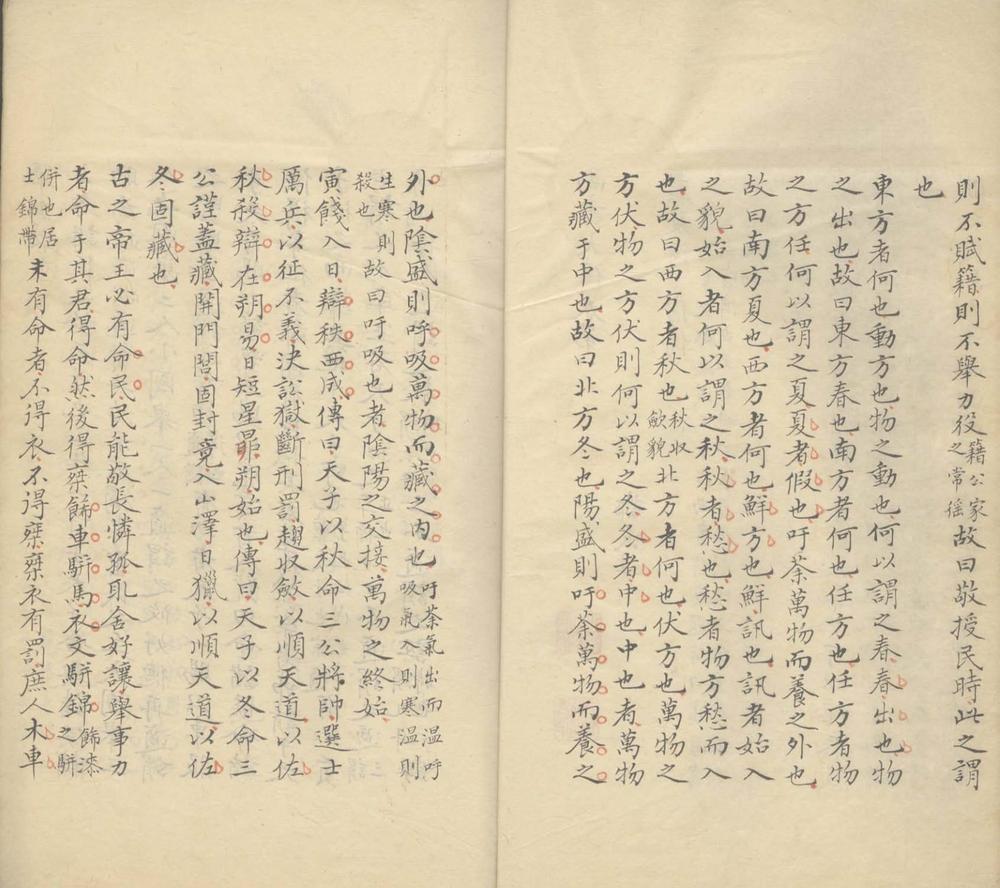 則不賦籍則不舉力役籍公家之常徭故曰敬授民時此之謂
也
東方者何也動方也物之動也何以謂之春春出也物
之出也故曰東方春也南方者何也任方也任方者物
之方任何以謂之夏夏者假也吁荼萬物而養之外也
故曰南方夏也西方者何也鮮方也鮮訊也訊者始入
之貌始入者何以謂之秋秋者愁也愁者物方愁而入
也故曰西方者秋也秋收斂貌北方者何也伏方也萬物之
方伏物之方伏則何以謂之冬冬者中也中也者萬物
方藏于中也故曰北方冬也陽盛則吁荼萬物而養之
外也陰盛則呼吸萬物而藏之内也吁荼氣出而温呼吸氣入則寒温則
生寒則殺也故曰吁吸也者陰陽之交接萬物之終始
寅餞入日辯秩西成傳曰天子以秋命三公將帥選士
厲兵以征不義決訟獄斷刑罰趨收斂以順天道以佐
秋殺辯在朔易日短星昴朔始也傳曰天子以冬命三
公謹蓋藏閉門閭固封竟入山澤日獵以順天道以佐
冬固藏也
古之帝王必有命民民能敬長憐孤取舍好讓舉事力
者命于其君得命然後得椉飾車騈馬衣文騈錦飾漆之騈
併也居士錦帶未有命者不得衣不得椉椉衣有罰庶人木車